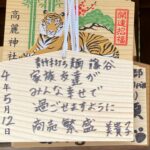 高麗神社
開運招福
手打ち麺 蓬谷
家族友達が
みんな幸せで
過ごせますように
商売繁盛
美貴子
4年5月12日